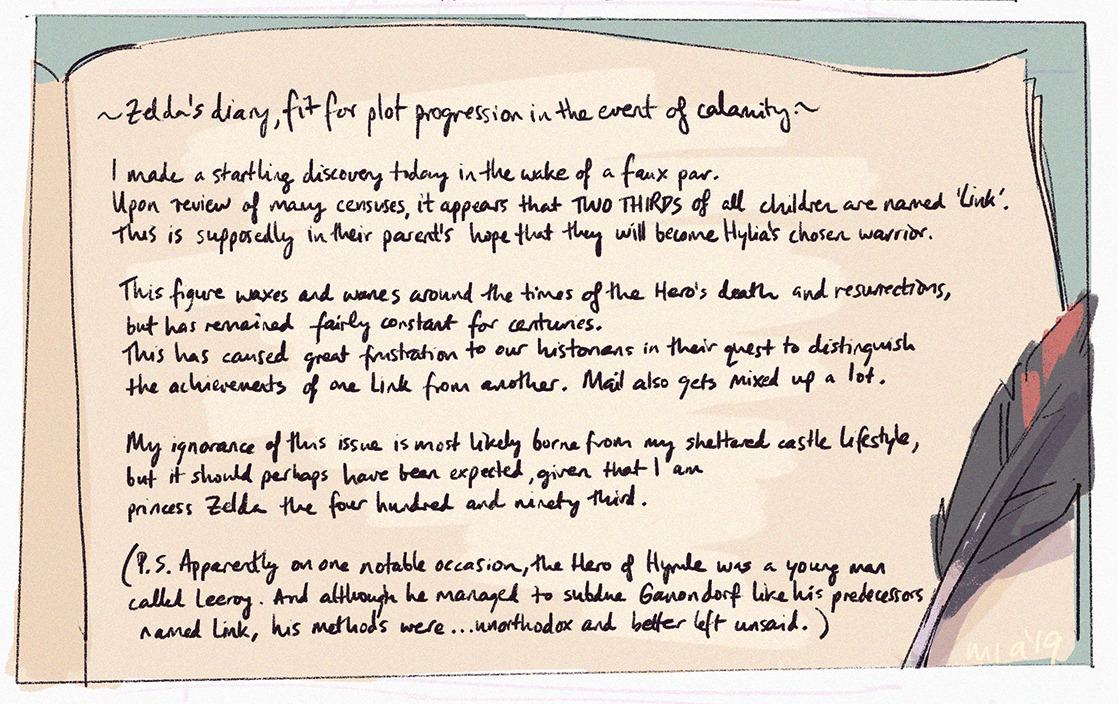 ~Zelda's diary, fit for plot progression in the event of calamity.~
I made a startling discovery today in the wake of a faux par.
Upon review of many censuses, it appears that TWO THIRDS of all children are named 'Link'.
This is supposedly in their parent's hope that they will become Hylia's chosen warrior.
This figure waxes and wanes around the times of the Hero's death and resurrections,
but has remained fairly constant for centuries.
This has caused great frustration to our historians in their quest to distinguish
the achievements of one Link from another. Mail also gets mixed up a lot.
My ignorance of this issue is most likely borne from my sheltered castle lifestyle,
but it should perhaps have been expected, given that I am
princess Zelda the four hundred and ninety third.
(P.S. Apparently on one notable occasion, the Hero of Hyrule was a young man
called Leeroy. And although he managed to subdue Ganondorf like his predecessors
named Link, his methods were...unorthodox and better left unsaid.)
mla'19